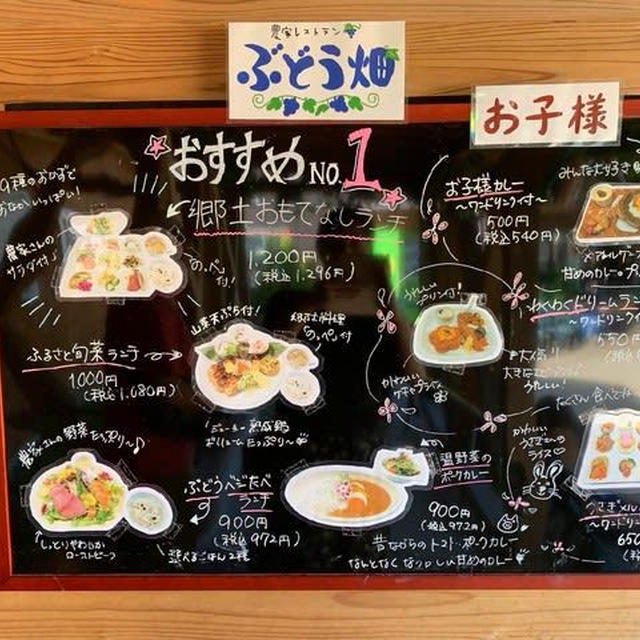 農家レストラン
ぶどう畑
お子様
おすすめ NO.1
郷土おもてなしランチ
1,200円
(税込1,296円)
9種のおかずで
おなかいっぱい!
農家さんの
サラダ付♪
のっぺい
付!
ふるさと旬菜ランチ
1000円
(税込1,080円)
山菜天ぷら付!
郷土料理
のっぺい付
ジューシー熟成鶏
ボリュームたっぷり~
農家さんの野菜たっぷり~♪
しっとりやわらか
ローストビーフ
ぶどうベジたべ
ランチ
900円
(税込972円)
選べるごはん2種
温野菜の
ポークカレー
900円
(税込972円)
昔ながらのトマトポークカレー
なんとなくなつかしい甘めのカレー
お子様カレー
~ワンドリンク付~
500円
(税込540円)
うれしい
プリン付!
かわいい
みんな大好き
甘めのカレー
わくわくドリームラ
~ワンドリンク
550円
(税込
大人気!
うれしい!
たくさん食べて
かわいい
うさぎさんの
ライス♡
うさぎ
~ワンドリンク
650
(税